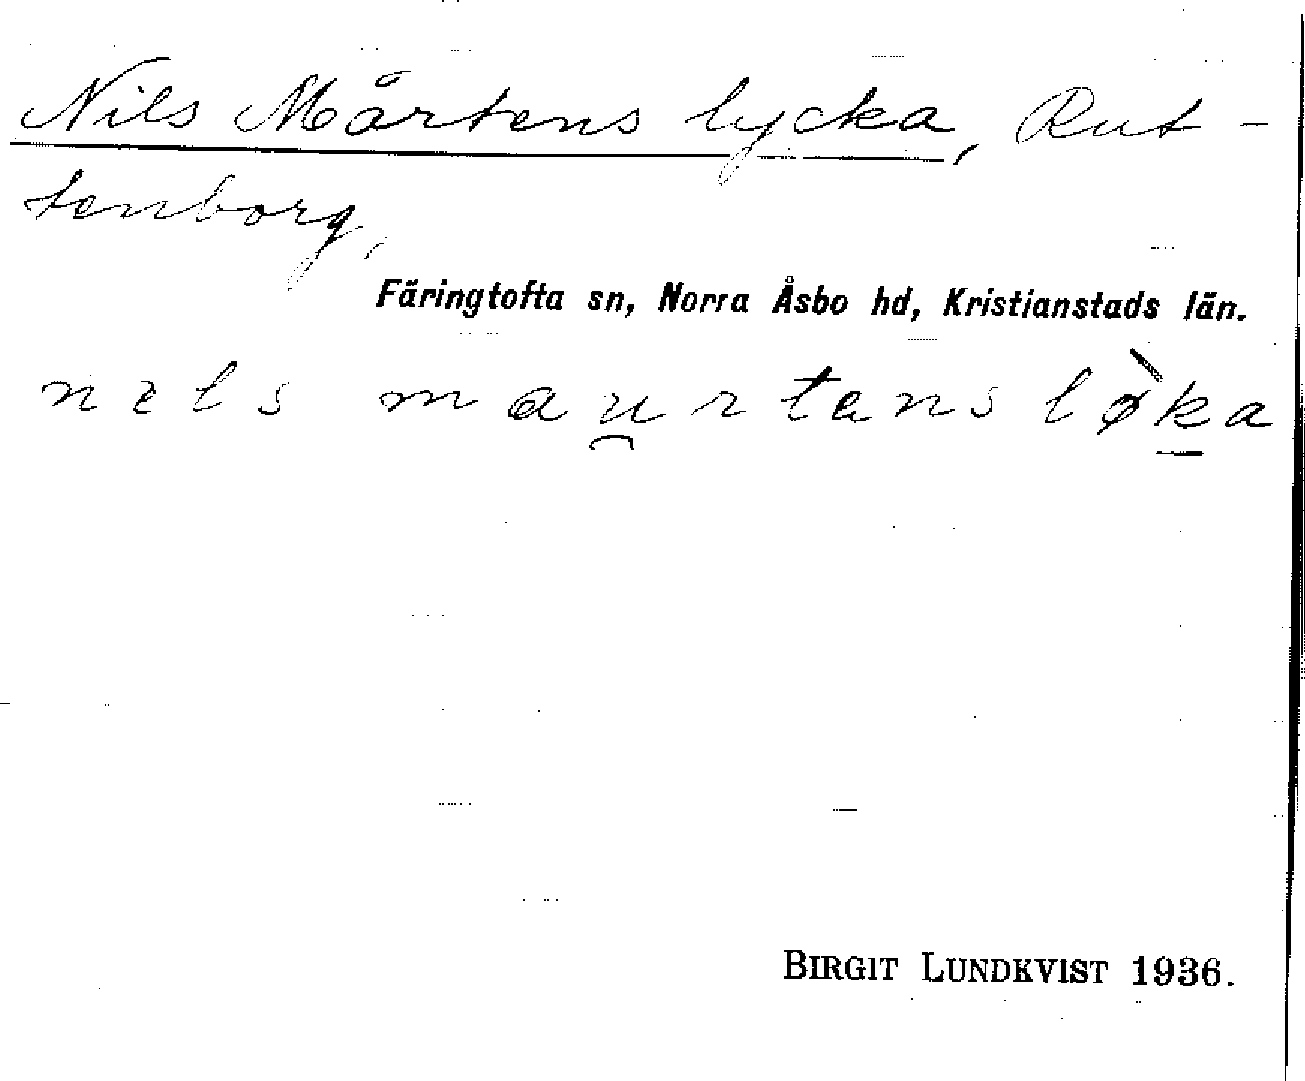 Nils Mårtens lycka, Rut-
tenborg,
Färingtofta sn, Norra Åsbo hd, Kristianstads län.
nels mau̯rtens lø̀ḵa
BIRGIT LUNDKVIST 1936.